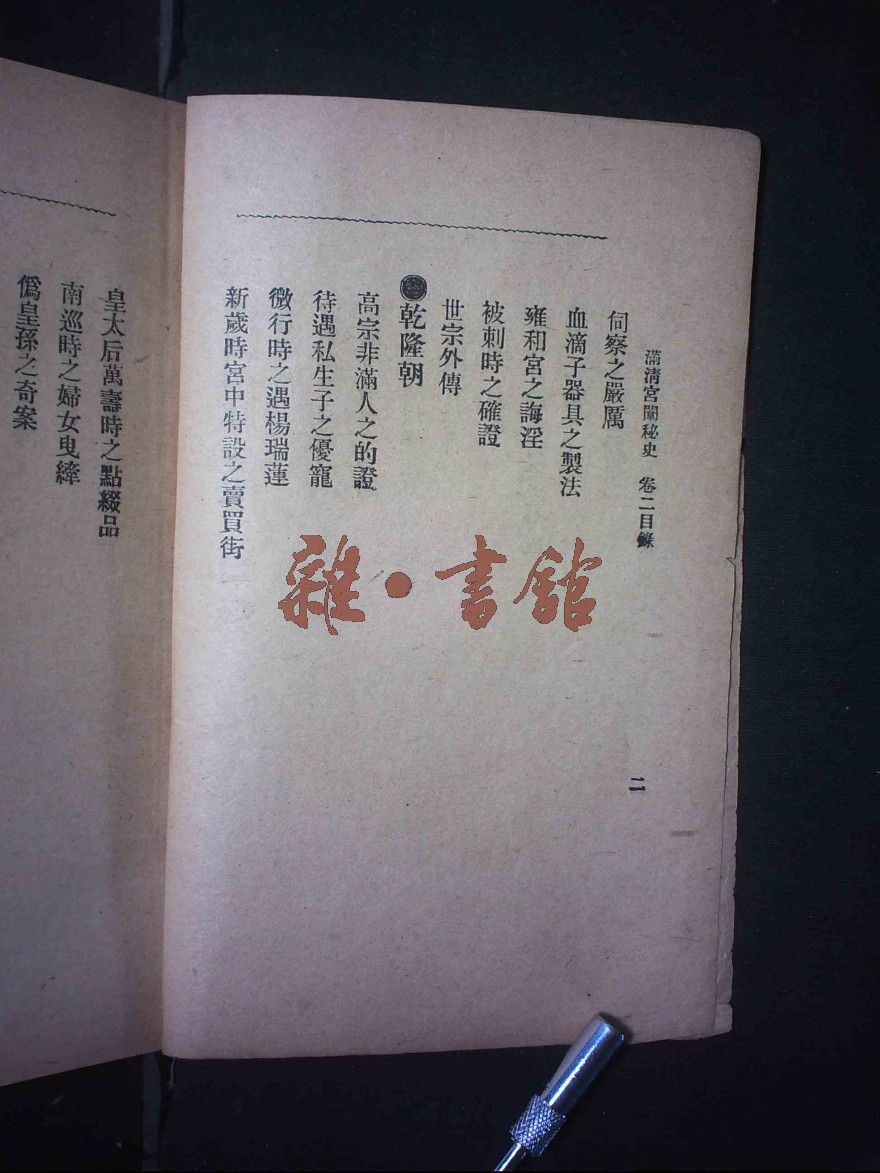 滿清宮闈秘史 卷二目錄
二
伺察之嚴厲
血滴子器具之製法
雍和宮之誨淫
被刺時之確證
世宗外傳
●乾隆朝
高宗非滿人之的證
待遇私生子之優寵
微行時之遇楊瑞蓮
新歲時宮中特設之賣買街
皇太后萬壽時之點綴品
南巡時之婦女曳縴
僞皇孫之奇案
雜·書館